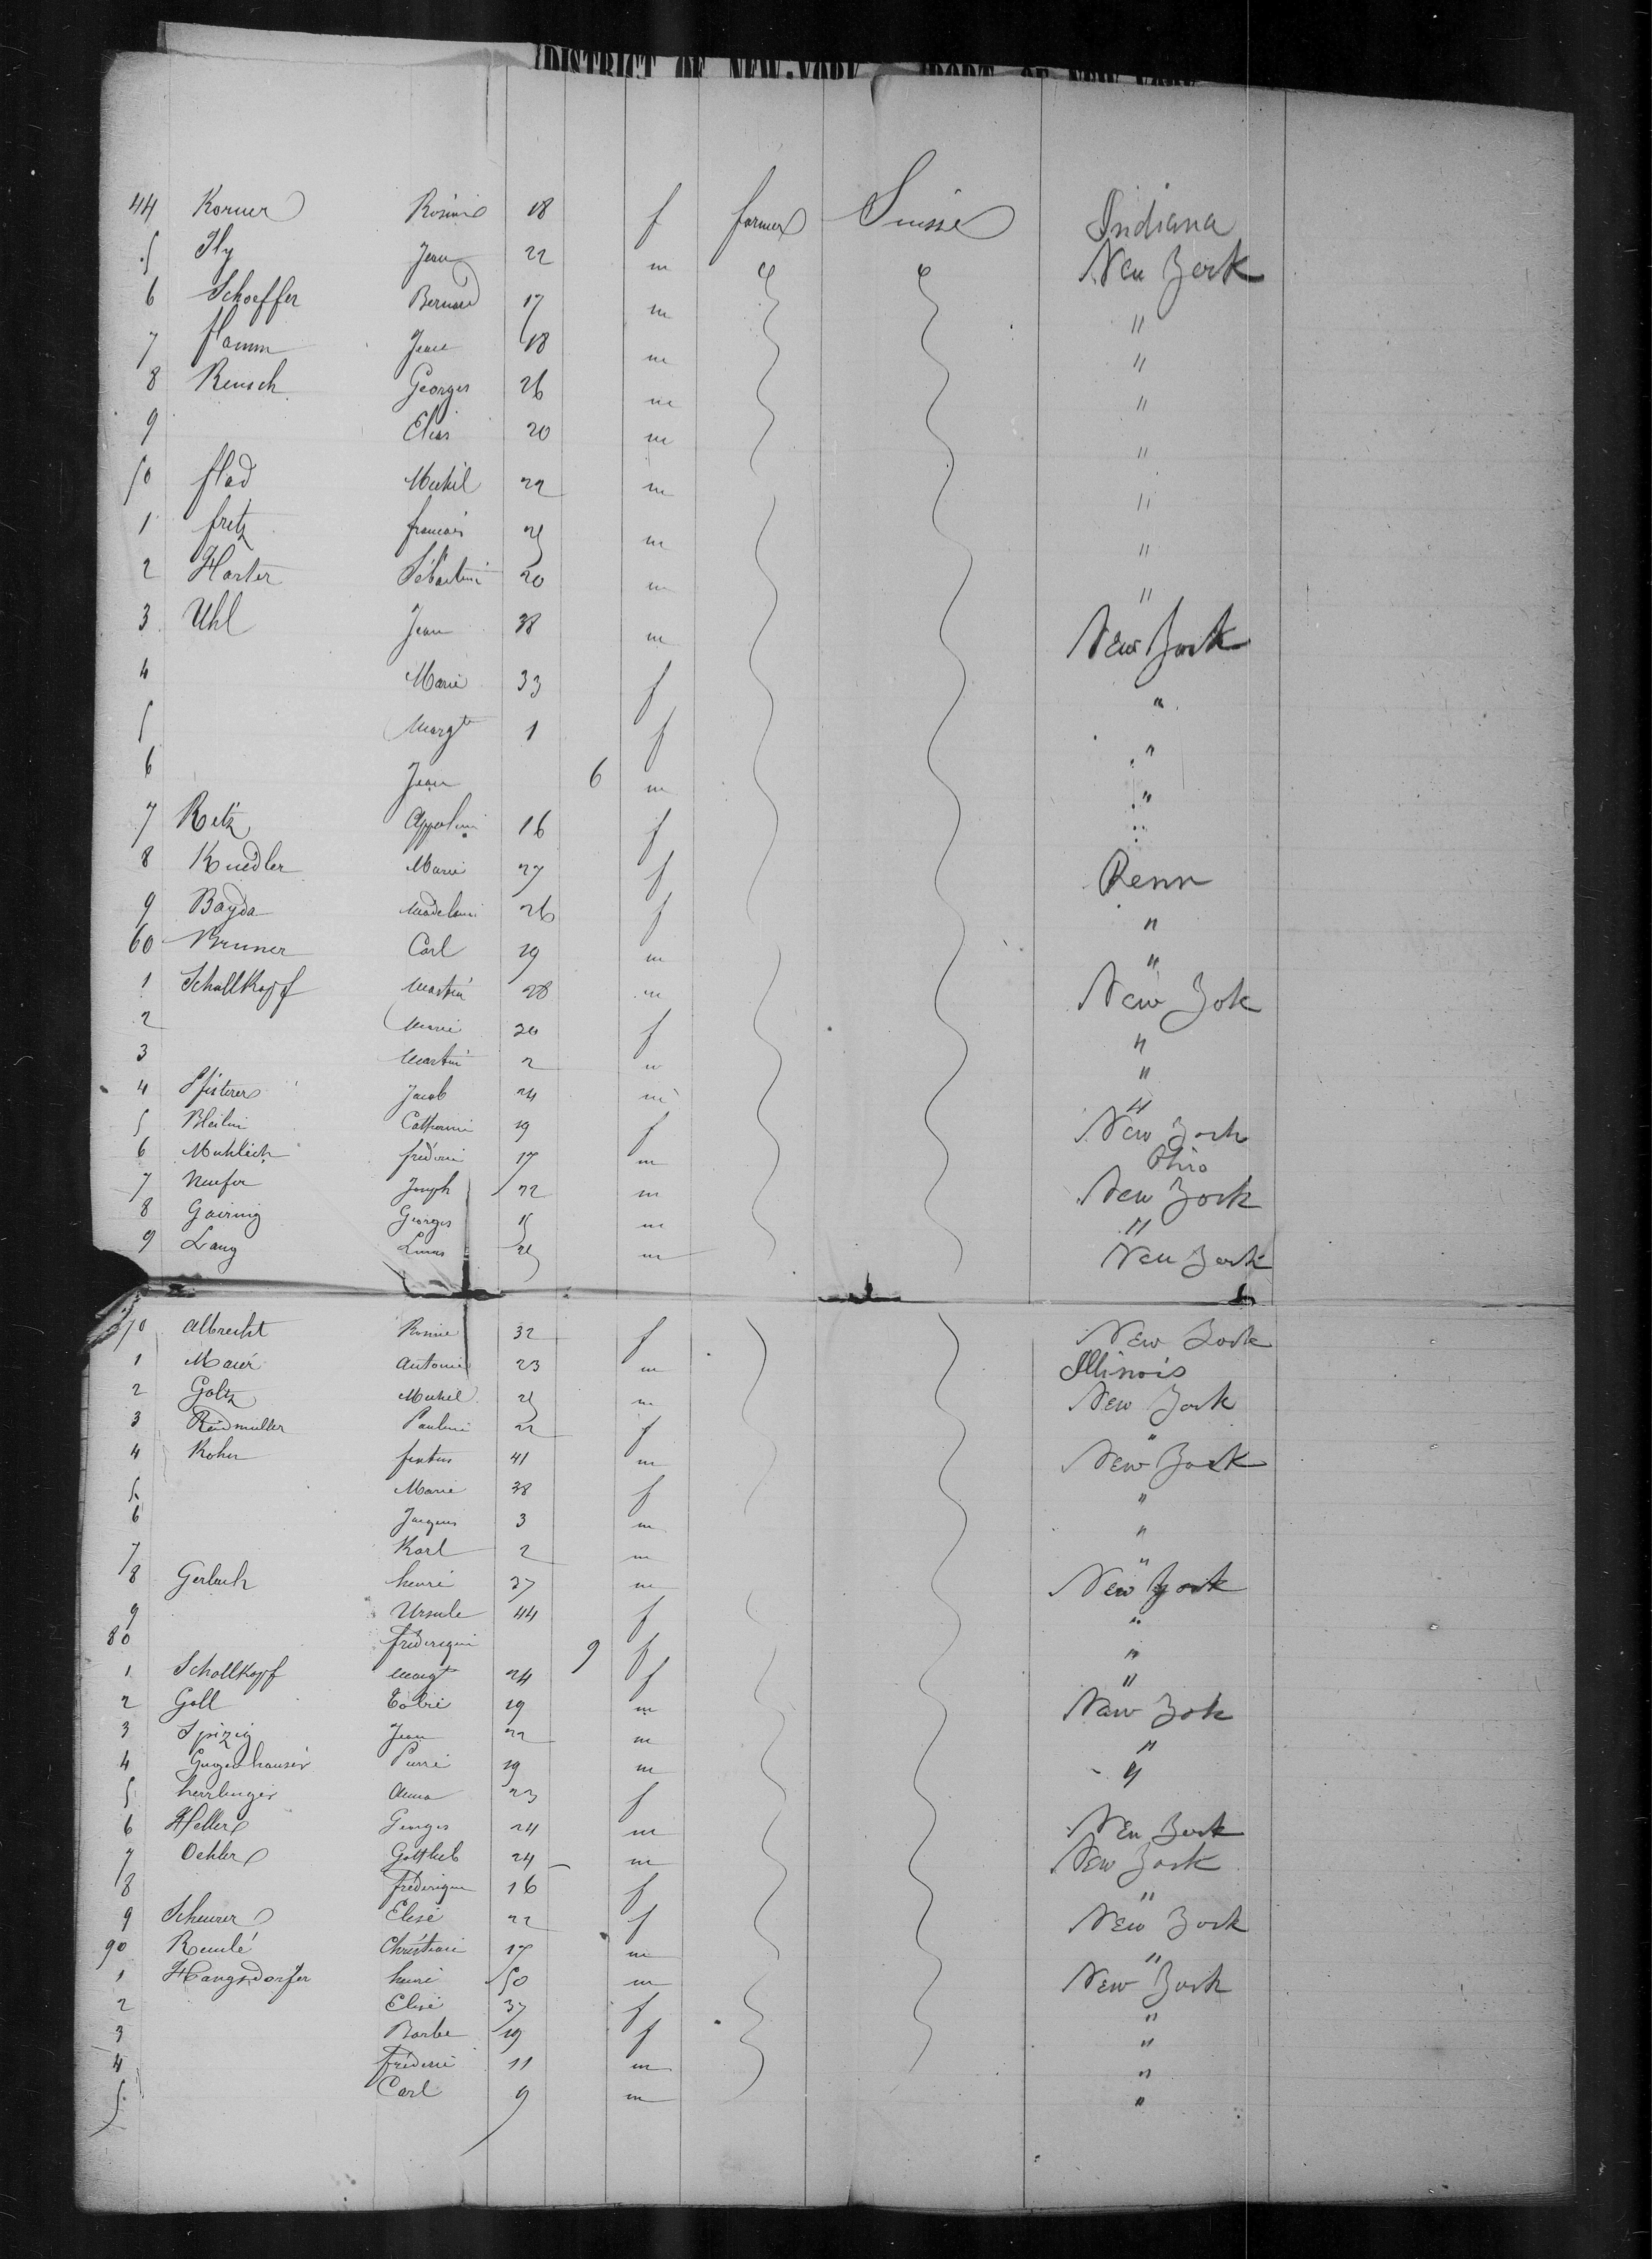 DISTRICT OF NEW-YORK PORT OF NEW YORK
44 Korner Rosine 18 f farmer Suisse Indiana
5 Ily Jean 22 m " " New York
6 Schoeffer Bernard 17 m "
7 flamm Jean 18 m "
8 Reusch Georges 26 m "
9 Elias 20 m "
50 flad Michel 22 m "
1 fretz francois 25 m "
2 Harter Sébastien 20 m "
3 Uhl Jean 38 m New York
4 Marie 33 f "
5 Margt 1 f "
6 Jean 6 m "
7 Retz Appoloni 16 f "
8 Kuedler Marie 27 f Penn
9 Bayda Madelaine 26 f "
60 Bruner Carl 19 m "
1 Schollkopf Martin 28 m New Yok
2 Marie 20 f "
3 Martin 2 m "
4 Pfisterer Jacob 24 m "
5 Catherine 19 f New York
6 Muhlich fréderic 17 m Ohio
7 Neufer Joseph 22 m New York
8 Gairing Georges 15 m "
9 Lang 25 m New York
70 Albrecht Rosine 32 f New York
1 Maier Antoine 23 m Illinois
2 Goltz Michel 25 m New York
3 Reidmuller Pauline 22 f "
4 Roher 41 m New York
5 Marie 38 f "
6 Jacques 3 m "
7 Karl 2 m "
8 Gerlach henri 37 m New York
9 Ursule 44 f "
80 fréderique 9 f "
1 Schollkopf Margt 24 f "
2 Goll Tobie 19 m New Yok
3 Spizig Jean 22 m "
4 Gugenhauser Pierre 19 m "
5 herrlinger Anna 23 f
6 Heller Georges 24 m New York
7 Oehler Gottlieb 24 m New York
8 fréderique 16 f "
9 Scheurer Elise 22 f New York
90 Remlé Christian 17 m "
1 Hangsdorfer henri 50 m New York
2 Elise 37 f "
3 Barbe 19 f "
4 fréderic 11 m "
5 Carl 9 m "